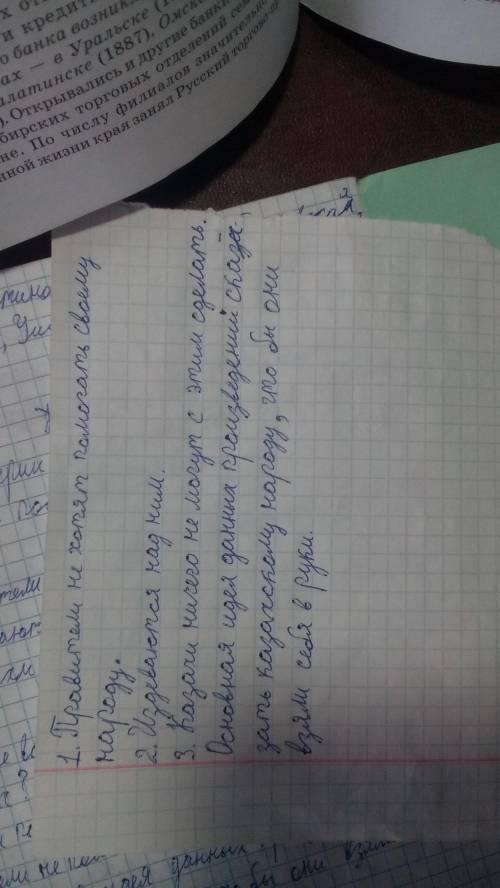 и кредит
банка возникл
ах — в Уральске (1
алатинске (1887), Омск
). Открывались и другие банки
бирских торговых отделений сем
не. По числу филиалов значительно
нной жизни края занял Русский торгово-п
1. Правители не хотят помогать своему
народу.
2. Издеваются над ним.
3. Казахи ничего не могут с этим сделать.
Основная идея данных произведений сказа-
зать казахскому народу, что бы они
взяли себя в руки.
ерии
тели
данных
бы они взял